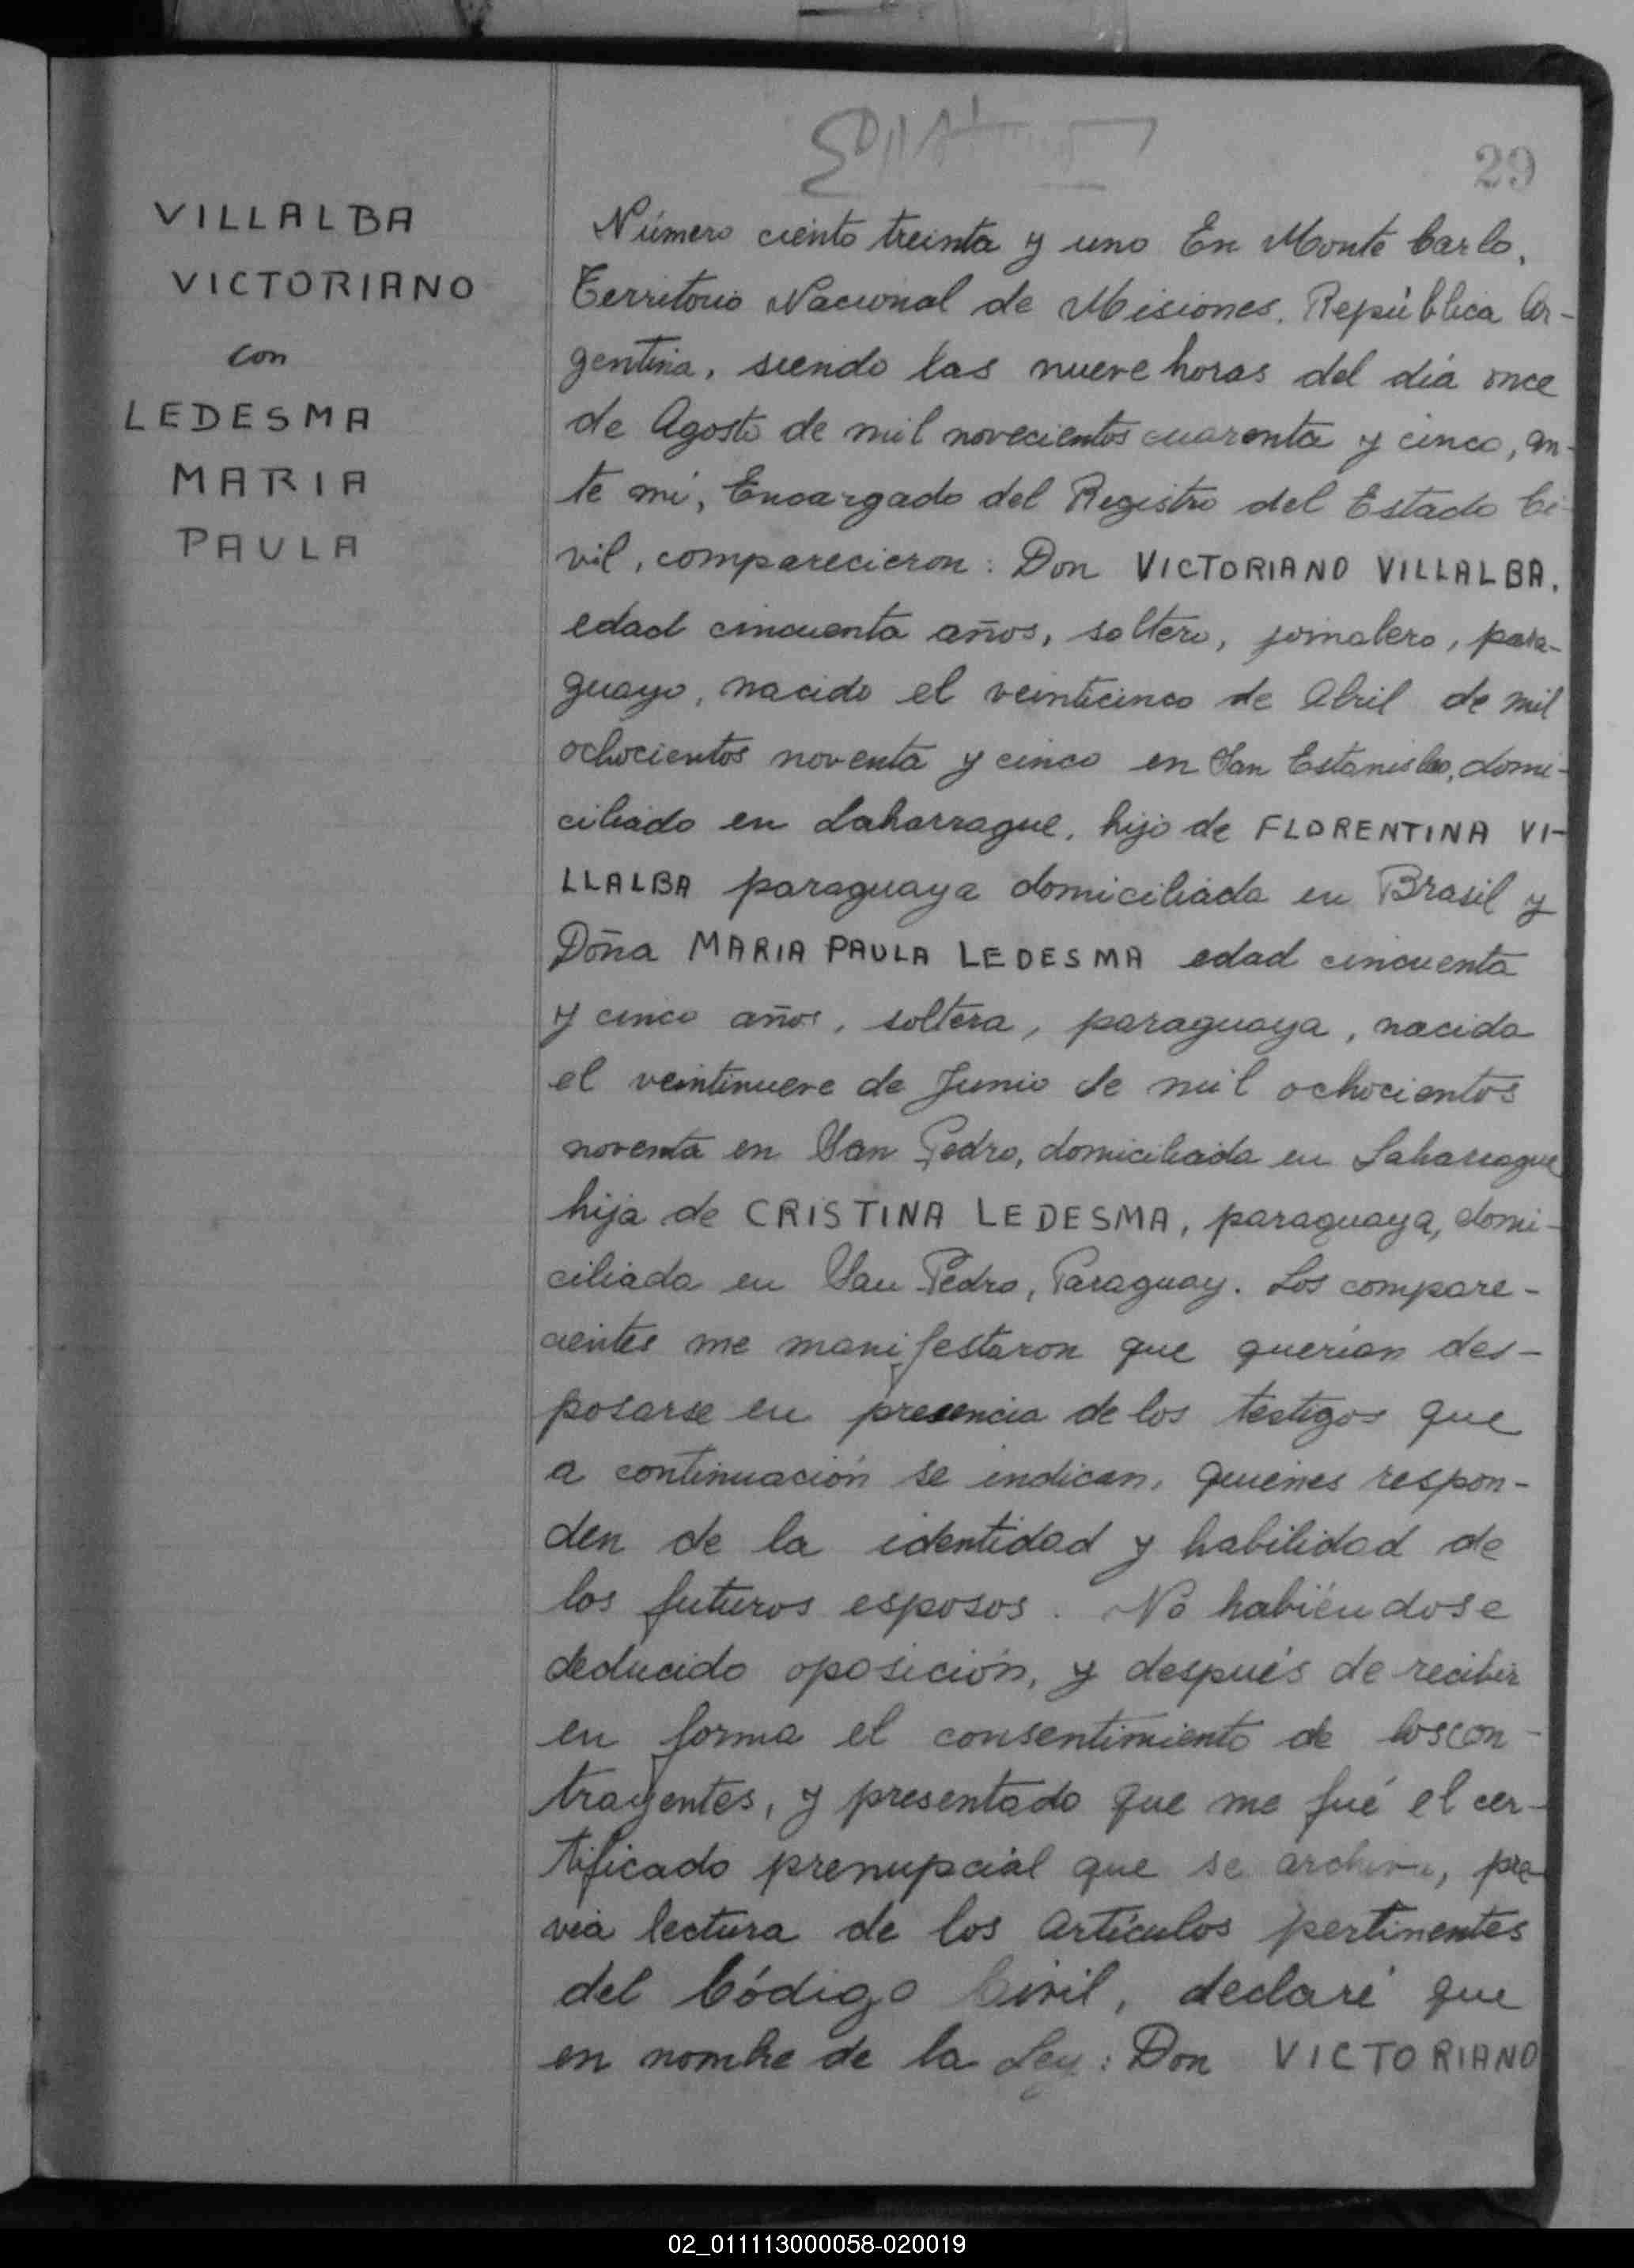 29
VILLALBA
VICTORIANO
con
LEDESMA
MARIA
PAULA
Número ciento treinta y uno En Monte Carlo,
Territorio Nacional de Misiones, República Ar-
gentina, siendo las nueve horas del día once
de Agosto de mil novecientos cuarenta y cinco, an-
te mí, Encargado del Registro del Estado Ci-
vil, comparecieron: Don VICTORIANO VILLALBA,
edad cincuenta años, soltero, jornalero, para-
guayo, nacido el veinticinco de Abril de mil
ochocientos noventa y cinco en San Estanislao, domi-
ciliado en Laharrague, hijo de FLORENTINA VI-
LLALBA paraguaya domiciliada en Brasil y
Doña MARIA PAULA LEDESMA edad cincuenta
y cinco años, soltera, paraguaya, nacida
el veintinueve de Junio de mil ochocientos
noventa en San Pedro, domiciliada en Laharrague
hija de CRISTINA LEDESMA, paraguaya, domi-
ciliada en San Pedro, Paraguay. Los compare-
cientes me manifestaron que querían des-
posarse en presencia de los testigos que
a continuación se indican, quienes respon-
den de la identidad y habilidad de
los futuros esposos. No habiéndose
deducido oposición, y después de recibir
en forma el consentimiento de los con-
trayentes, y presentado que me fué el cer-
tificado prenupcial que se archiva, pre-
via lectura de los artículos pertinentes
del Código Civil, declaré que
en nombre de la Ley: Don VICTORIANO
02_011113000058-020019